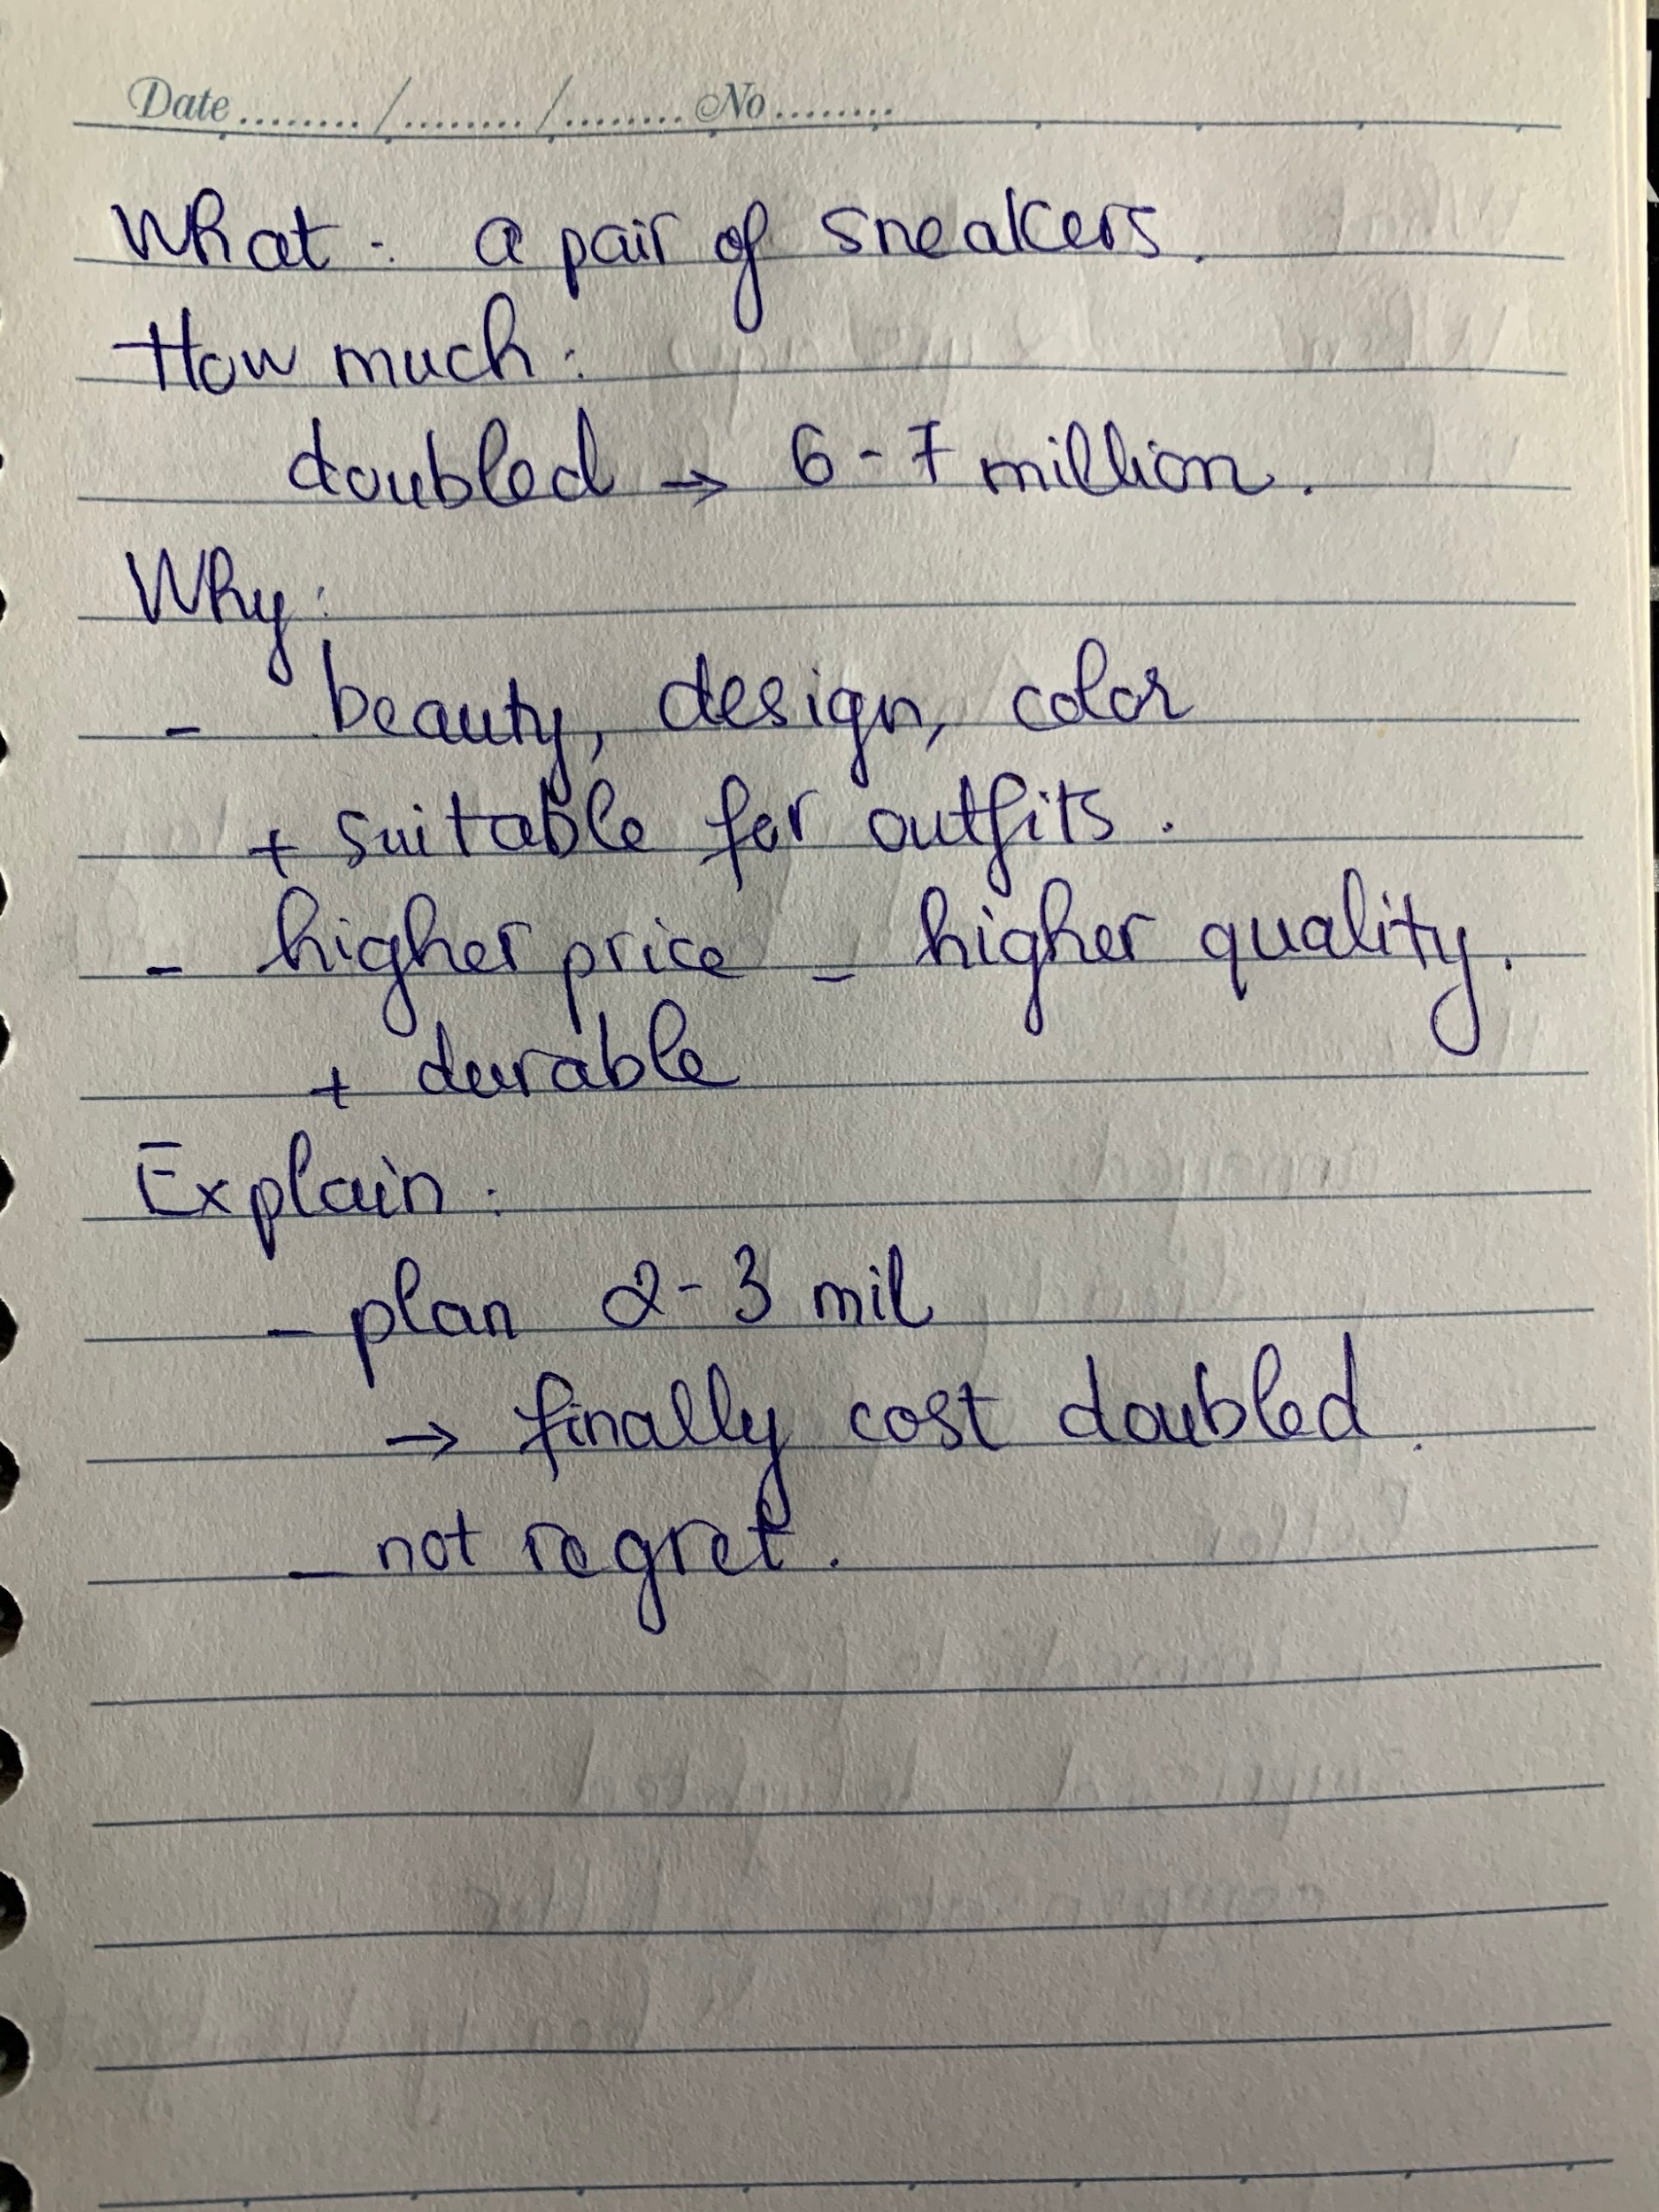 Date ......../......../........ No ........
What : a pair of sneakers.
How much :
doubled → 6 - 7 million.
Why :
- beauty, design, color
+ suitable for outfits.
- higher price - higher quality.
+ durable
Explain :
- plan 2 - 3 mil
→ finally cost doubled.
- not regret.